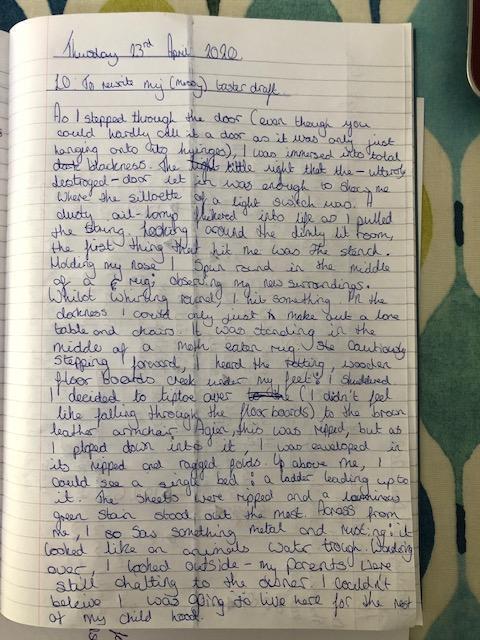 Thursday 23rd April 2020
LO: To rewrite my (messy) taster draft.
As I stepped through the door (even though you
could hardly call it a door as it was only just
hanging onto its hyinges), I was immersed into total
blackness. The little light that the - utterly
destroyed - door let in was enough to show me
where the sillouette of a light switch was. A
dusty oil-lamp flickered into life as I pulled
the string. Looking around the dimly lit room,
the first thing that hit me was the stench.
Holding my nose I spun round in the middle
of a rug; observing my new surroundings.
Whilst whirling round, I hit something. In the
darkness I could only just make out a lone
table and chairs. It was standing in the
middle of a moth eaten rug. Cautiously
stepping forward, I heard the rotting, wooden
floor boards creek under my feet: I shuddered
I decided to tiptoe over (I didn't feel
like falling through the floor boards) to the brown
leather armchair. Again, this was ripped, but as
I ploped down into it, I was enveloped in
its ripped and ragged folds. Up above me, I
could see a single bed: a ladder leading up to
it. The sheets were ripped and a
green stain stood out the most. Across from
me, I saw something metal and rusting: it
looked like an animals water trough. Wandering
over, I looked outside - my parents were
still chatting to the owner. I couldn't
beleive I was going to live here for the rest
of my child hood.